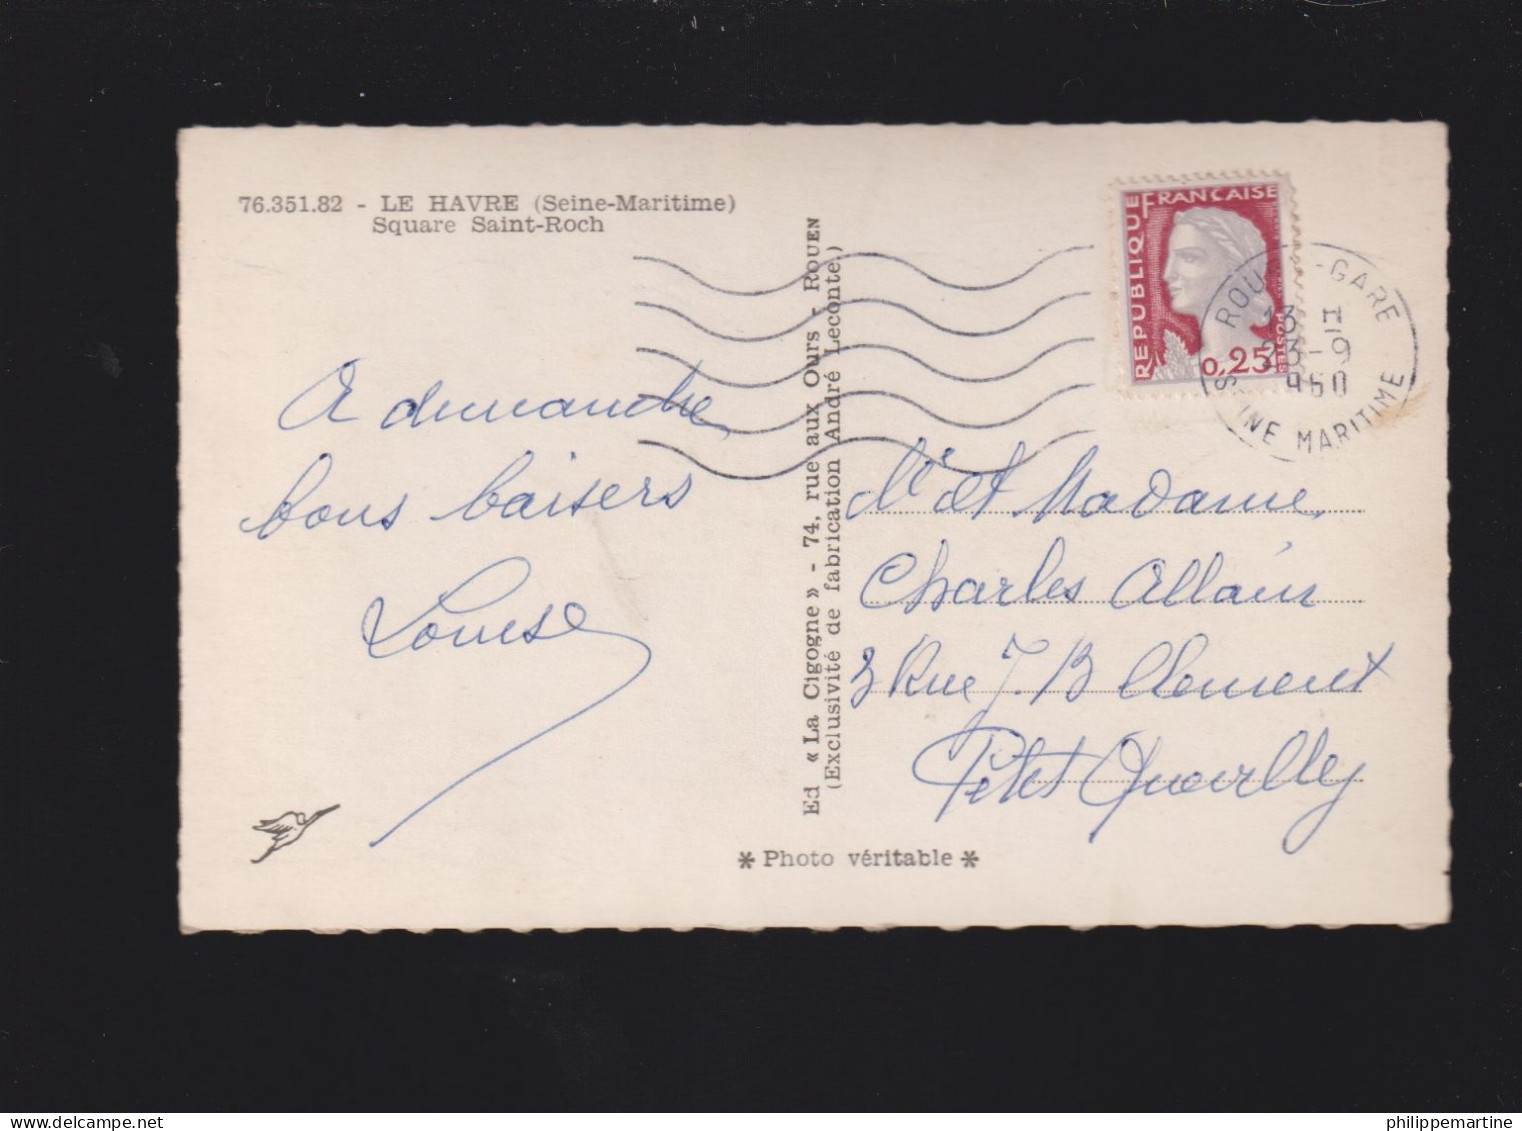 76.351.82 - LE HAVRE (Seine-Maritime)
Square Saint-Roch
A dimanche
bons baisers
Louise
Ed « La Cigogne » - 74, rue aux Ours - ROUEN
(Exclusivité de fabrication André Leconte.)
* Photo véritable *
RÉPUBLIQUE FRANÇAISE
0,25
POSTES
ROU -GARE
13 H
23-9
1960
SEINE MARITIME
Mr et Madame
Charles Allain
3 Rue J. B Clement
Petit Quevilly
philippemartine